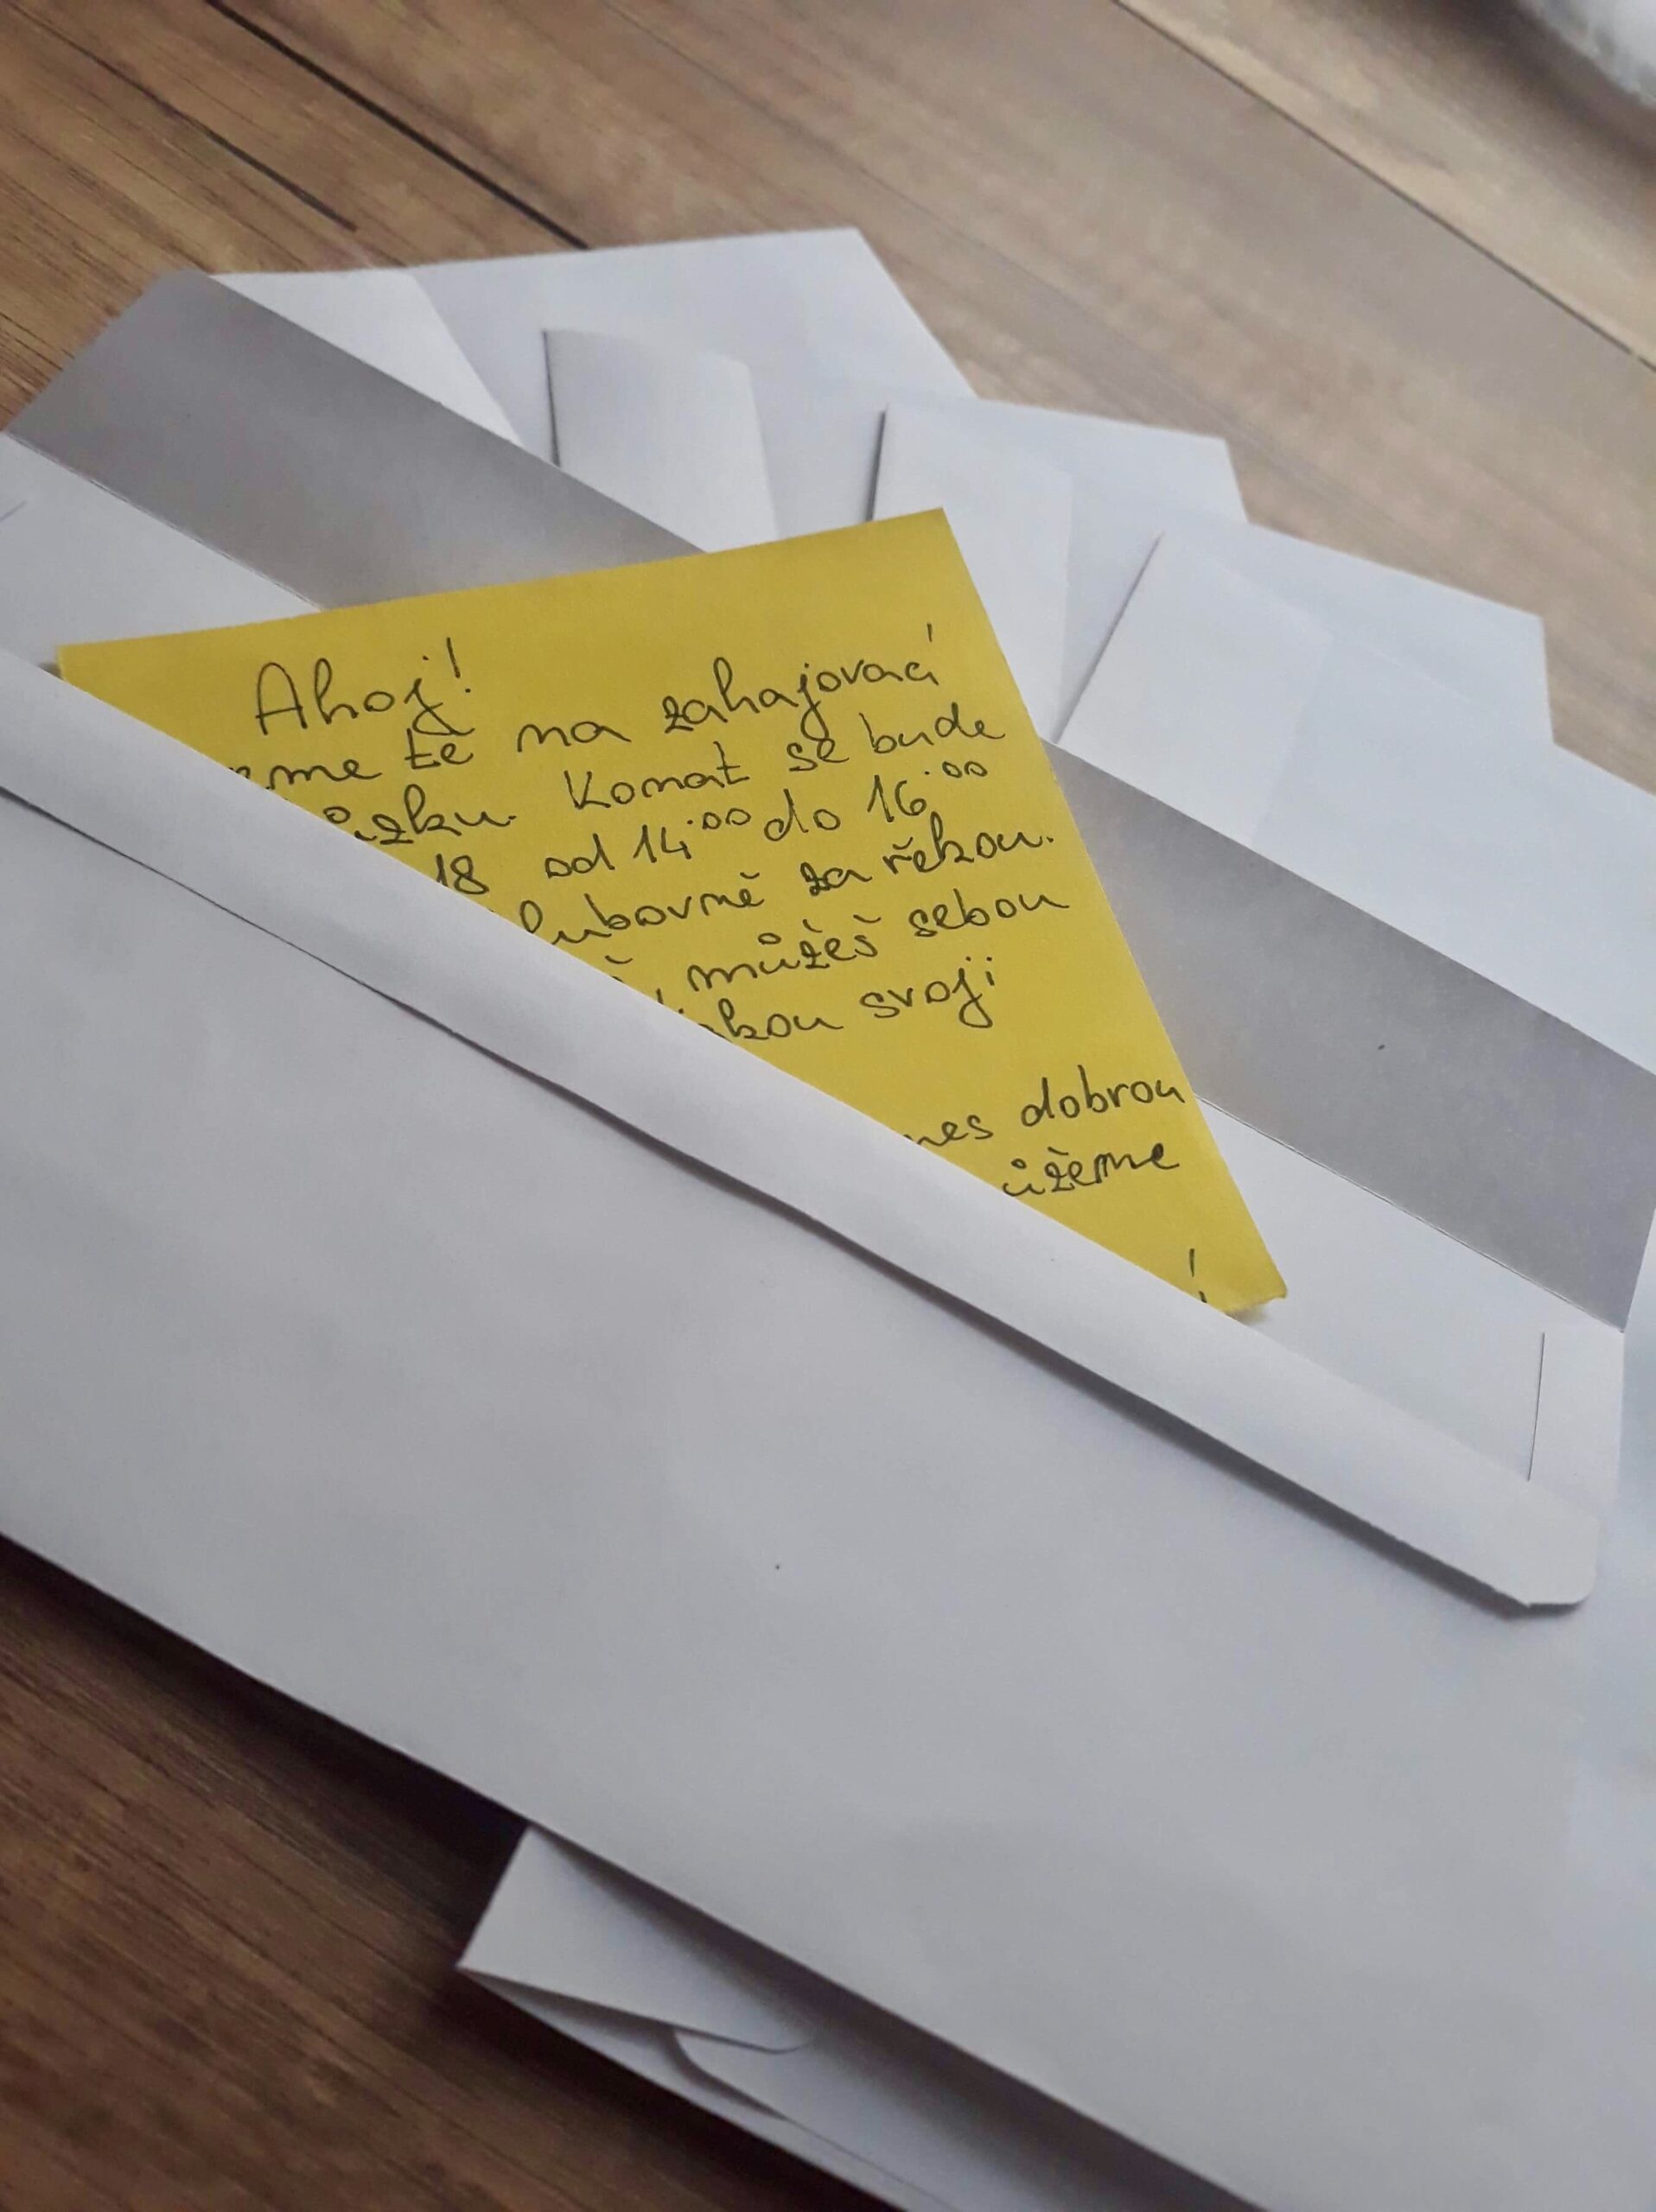 Ahoj!
me te na zahajovací
ůzku. Konat se bude
18 od 14:00 do 16:00
lubovně za řekou.
můžeš sebou
kou svoji
nes dobrou
ůžeme
!